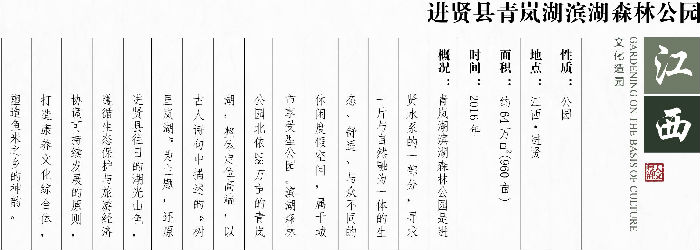 进贤县青岚湖滨湖森林公园
江西
GARDENING ON THE BASIS OF CULTURE
文化造园
性质：公园
地点：江西·进贤
面积：约64万㎡(960亩)
时间：2016年
概况：青岚湖滨湖森林公园是进
贤水系的一部分，寻求
一片与自然融为一体的生
态、舒适、与众不同的
休闲度假空间，属于城
市郊野型公园。滨湖森林
公园北依万亩的青岚
湖，以
古人诗句中描述的“树
里岚湖”为主题，还原
进贤县往日的湖光山色，
遵循生态保护与旅游经济
协调可持续发展的原则，
打造康养文化综合体，
塑造鱼米之乡的神韵。